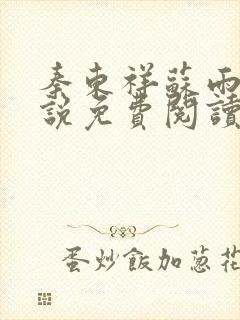 秦東祥蘇雨
說免費閱讀
蛋炒飯加蔥花